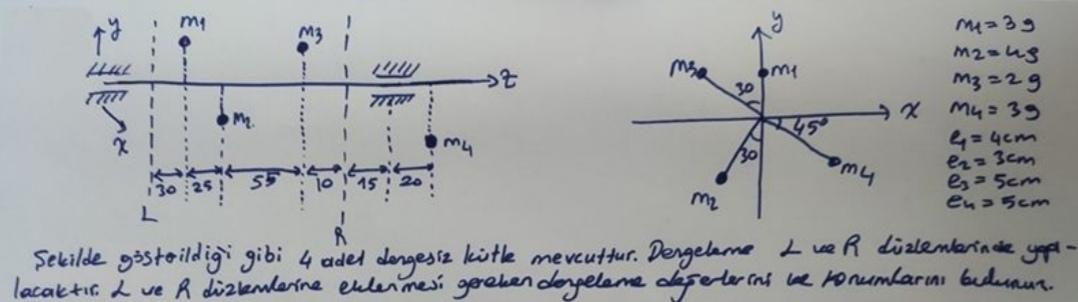 y
m1
m3
z
x
m2
m4
30 25 55 10 15 20
L
R
y
m3
m1
30
x
45°
30
m4
m2
m1=3g
m2=4g
m3=2g
m4=3g
e1=4cm
e2=3cm
e3=5cm
e4=5cm
Şekilde gösterildiği gibi 4 adet dengesiz kütle mevcuttur. Dengeleme L ve R düzlemlerinde yapı-
lacaktır. L ve R düzlemlerine eklenmesi gereken dengeleme değerlerini ve konumlarını bulunuz.